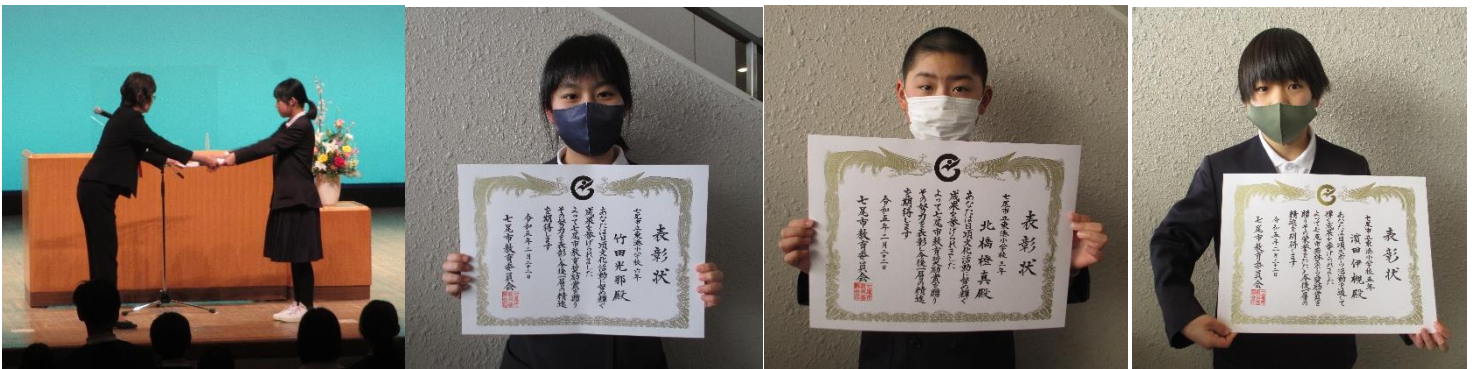 表彰状
七尾市立東湊小学校六年
竹田光那殿
あなたは日頃文化活動に努め輝く
成果を挙げられました
よって七尾市教育奨励賞を贈り
その努力を表彰し今後一層の精進
を期待します
令和五年二月二十二日
七尾市教育委員会
表彰状
七尾市立東湊小学校三年
北橋橙真殿
あなたは日頃文化活動に努め輝く
成果を挙げられました
よって七尾市教育奨励賞を贈り
その努力を表彰し今後一層の精進
を期待します
令和五年二月二十二日
七尾市教育委員会
表彰状
七尾市立東湊小学校五年
濵田伊槻殿
あなたは日頃スポーツ活動を通して
輝く成果を挙げられました
よって七尾市教育奨励賞を
贈りその栄誉をたたえ今後一層の
精進を期待します
令和五年二月二十二日
七尾市教育委員会